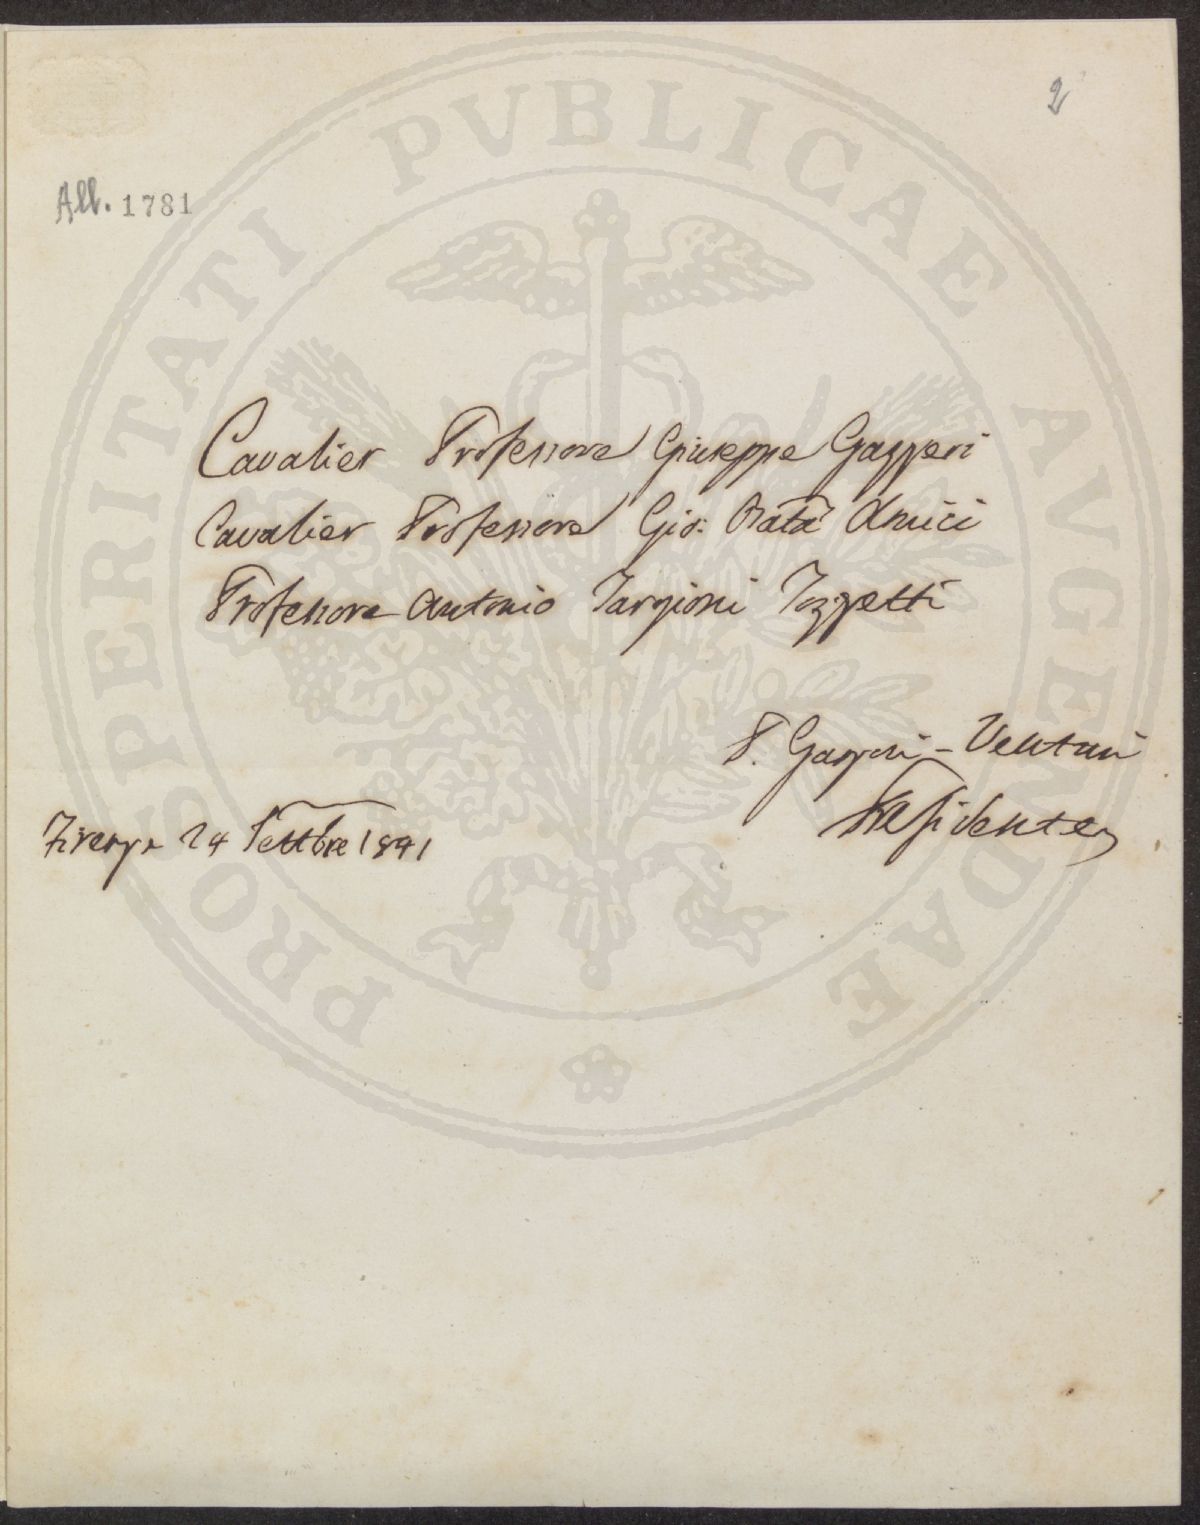 2
All. 1781
Cavalier Professore Giuseppe Gazzeri
Cavalier Professore Gio: Bata Amici
Professore Antonio Targioni Tozzetti
P. Gazzeri-Venturi
Presidente
Firenze 24 Settbre 1841
PROSPERITATI PVBLICAE AVGENDAE